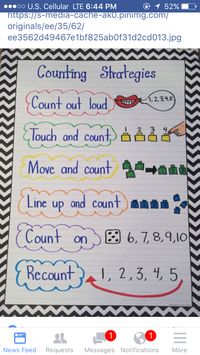 U.S. Cellular LTE 6:44 PM 52%
https://s-media-cache-ak0.pinimg.com/
originals/ee/35/62/
ee3562d49467e1bf825ab0f31d2cd013.jpg
Counting Strategies
Count out loud 1, 2, 3, 4, 5
Touch and count 1 2 3 4
Move and count
Line up and count
Count on 6, 7, 8, 9, 10
Recount 1, 2, 3, 4, 5
1 1
News Feed Requests Messages Notifications More